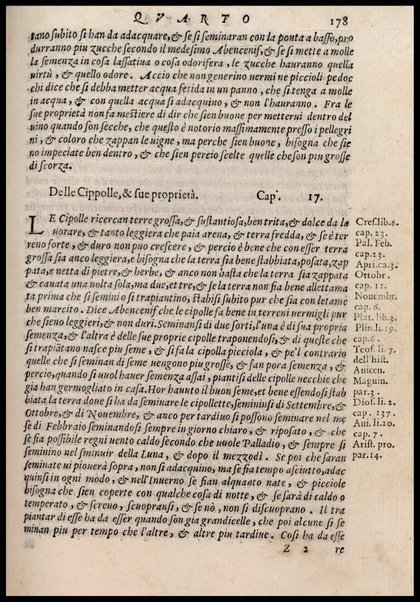 QVARTO 178
tano subito si han da adacquare, & se si seminaran con la ponta a basso, pro
durranno piu zucche secondo il medesimo Abencenif, & se si mette a molle
la semenza in cosa lassatiua o cosa odorifera, le zucche hauranno quella
uirtù, & quello odore. Accio che non generino uermi ne piccioli pedoc
chi dice che si debba metter acqua fetida in un panno, che si tenga a molle
in acqua, & con quella acqua si adacquino, & non l'hauranno. Fra le
sue proprietà non fa mestiere di dir che sien buone per metterui dentro del
uino quando son secche, che questo è notorio massimamente presso i pellegri
ni, & coloro che zappan le uigne, ma perche sien buone, bisogna che sie
no impeciate ben dentro, & che sien percio scelte quelle che son piu grosse
di scorza.
Delle Cippolle, & sue proprietà. Cap. 17.
LE Cipolle ricercan terre grossa, & sustantiosa, ben trita, & dolce da la
uorare, & tanto leggiera che paia arena, & terra fredda, & se è ter
reno forte, & duro non puo crescere, & percio è bene che con esser terra
grossa sia anco leggiera, e bisogna che la terra sia bene stabbiata, posata, zap
pata, e netta di pietre, & herbe, & anco non basta che la terra sia zappata
& cauata una uolta sola, ma due, et tre, & se la terra non fia bene allettama
ta prima che si semini o si trapiantino, stabisi subito pur che sia con letame
ben marcito. Dice Abencenif che le cipolle fa bene in terreni uermigli pur
che sieno leggieri, & non duri. Seminansi di due sorti, l'una è di sua propria
semenza, & l'altra è delle sue proprie cipolle traponendosi, & di queste che
si trapiãtano nasce piu seme, & si fa la cipolla picciola, & pe'l contrario
quelle che si seminan di seme uengono piu grosse, & fan poca semenza, &
percio, quando si uuol hauer semenza assai, piantisi delle cipolle uecchie che
gia han germogliato in casa. Hor hauuto il buon seme, et bene essendosi stab
biata la terra doue si ha da seminare le cipollette, seminisi di Settembre, &
Ottobre, & di Nouembre, & anco per tardino si possono seminare nel me
se di Febbraio seminandosi sempre in giorno chiaro, & riposato, & che
se fia possibile regni uento caldo secondo che uuole Palladio, & sempre si
seminino nel sminuir della Luna, & dopo il mezzodì. Se poi che saran
seminate ui piouerà sopra, non si adacquino, ma se fia tempo asciutto, adac
quinsi in ogni modo, & nell'Inuerno se fian alquanto nate, & picciole
bisogna che sien coperte con qualche cosa di notte, & se sarà di caldo o
temperato, & sereno, scuopransi, & se nò, non si discuoprano. Il tra
piantar di esse ha da esser quando son gia grandicelle, che poi alcune si se
minan piu per tempo che l'altre, & altre piu tardiue. Cosi ha da esse
Z 2 re
Cres. lib. 6.
cap. 23.
Pal. Feb.
cap. 23.
Apri. ca. 3.
Ottobr.
cap. 11.
Nouembr.
cap. 6.
Plat. lib. 3.
Plin. li. 19.
cap. 6.
Teof. li. 7.
dell'hist.
Auicen.
Maguin.
par. 3.
Dios. li. 2.
cap. 137.
Aui. li. 20.
cap. 7.
Arist. pro.
par. 14.